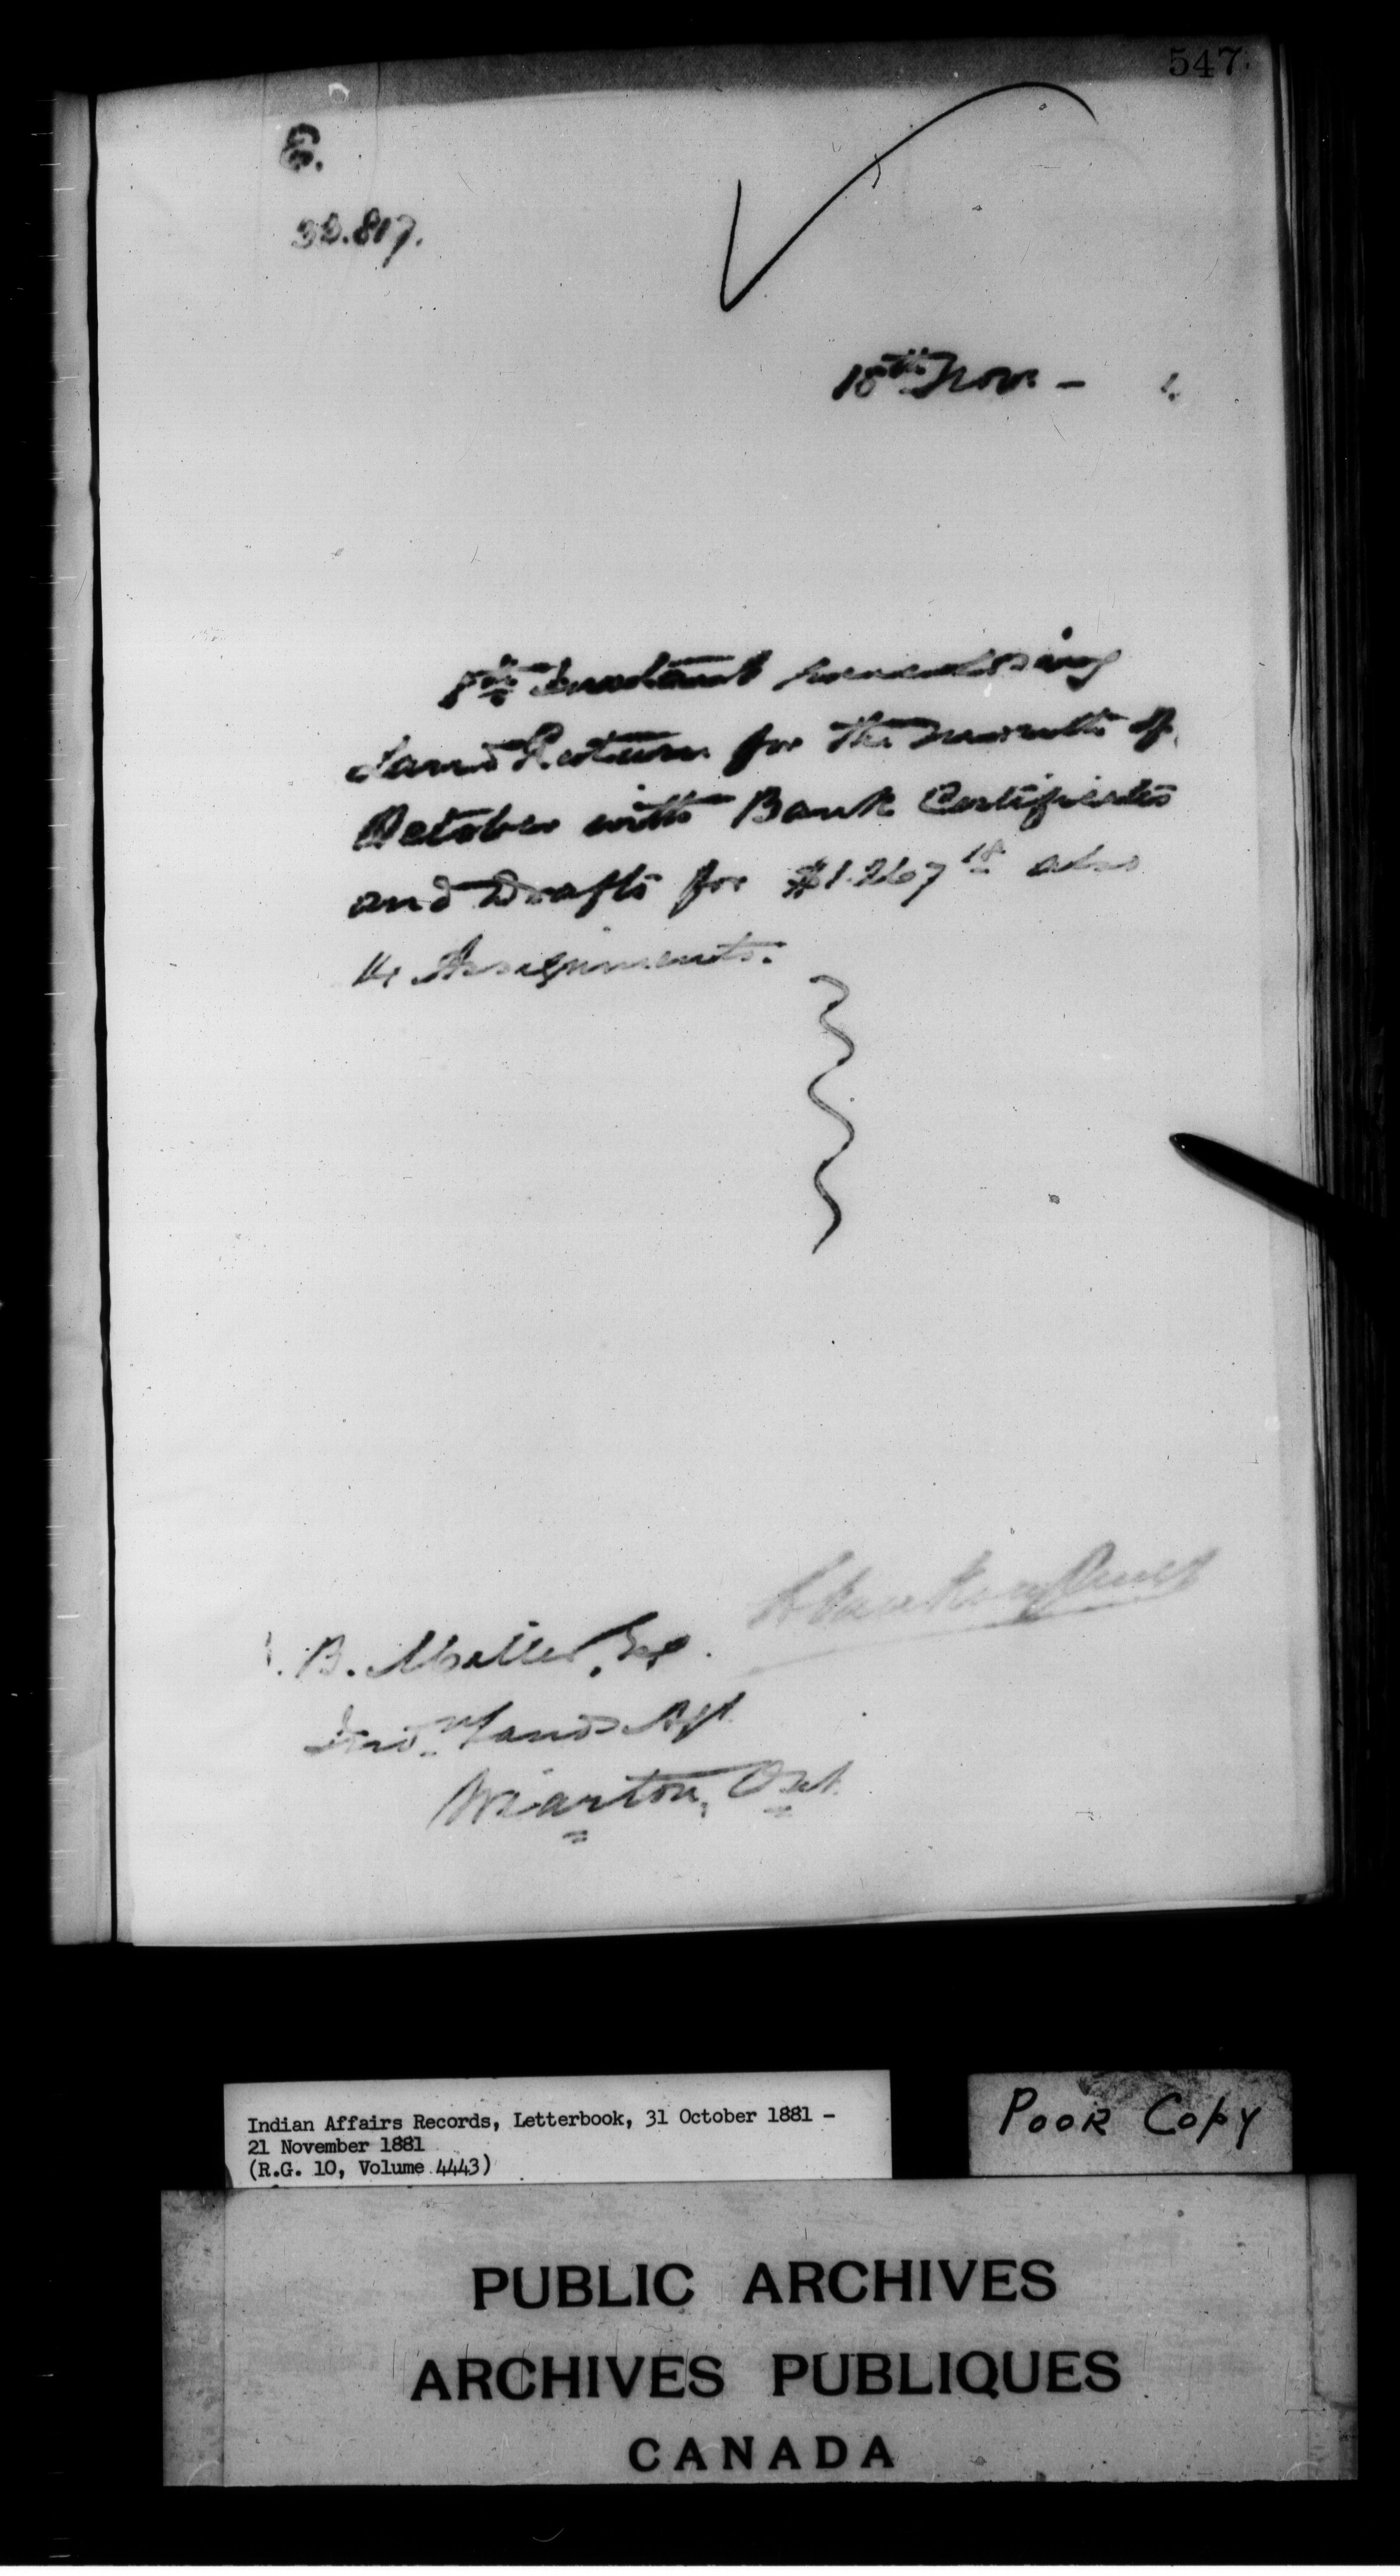 547.
E.
32.817.
18th Nov. - 1.
8th Instant enclosing
Land Return for the month of
October with Bank Certificates
and Drafts for $1.267 18 also
4 Assignments.
B. Miller, Esq.
Ind. Lands Agt
Wiarton, Ont.
Indian Affairs Records, Letterbook, 31 October 1881 -
21 November 1881
(R.G. 10, Volume 4443)
POOR COPY
PUBLIC ARCHIVES
ARCHIVES PUBLIQUES
CANADA